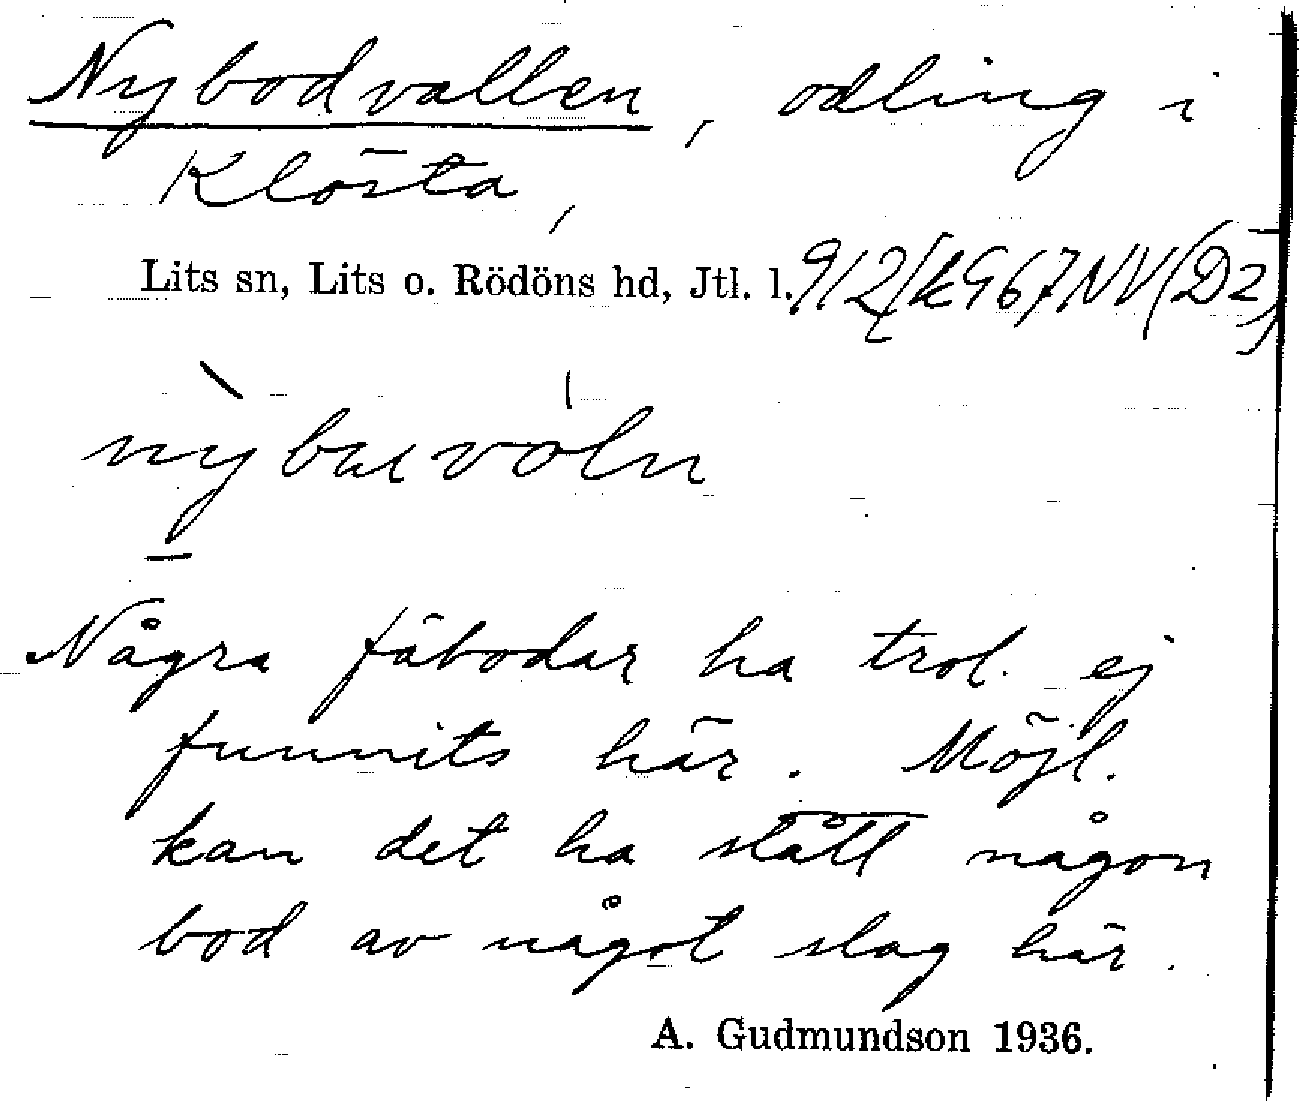 Nybodvallen, odling i
Klösta,
Lits sn, Lits o. Rödöns hd, Jtl. l. 912/k967NV(D2)
Några fäbodar ha trol. ej
funnits här. Möjl.
kan det ha stått någon
bod av något slag här.
A. Gudmundson 1936.